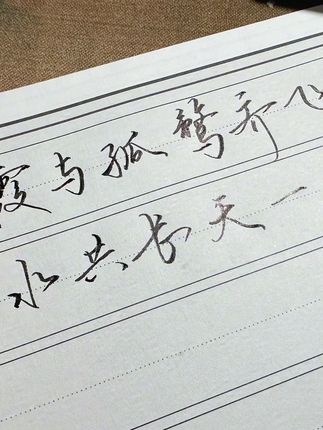 霞与孤鹜齐飞
水共长天一